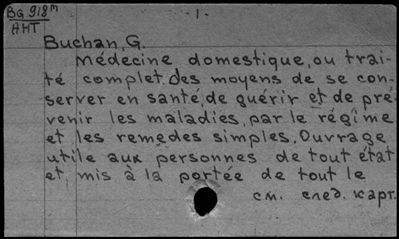 BG 918ᴹ
АНТ
- 1 -
Buchan, G.
Médecine domestique, ou trai-
té complet des moyens de se con-
server en santé, de guérir et de pré-
venir les maladies, par le régime
et les remedes simples. Ouvrage
utile aux personnes de tout état
et mis à la portée de tout le
см. след. карт.